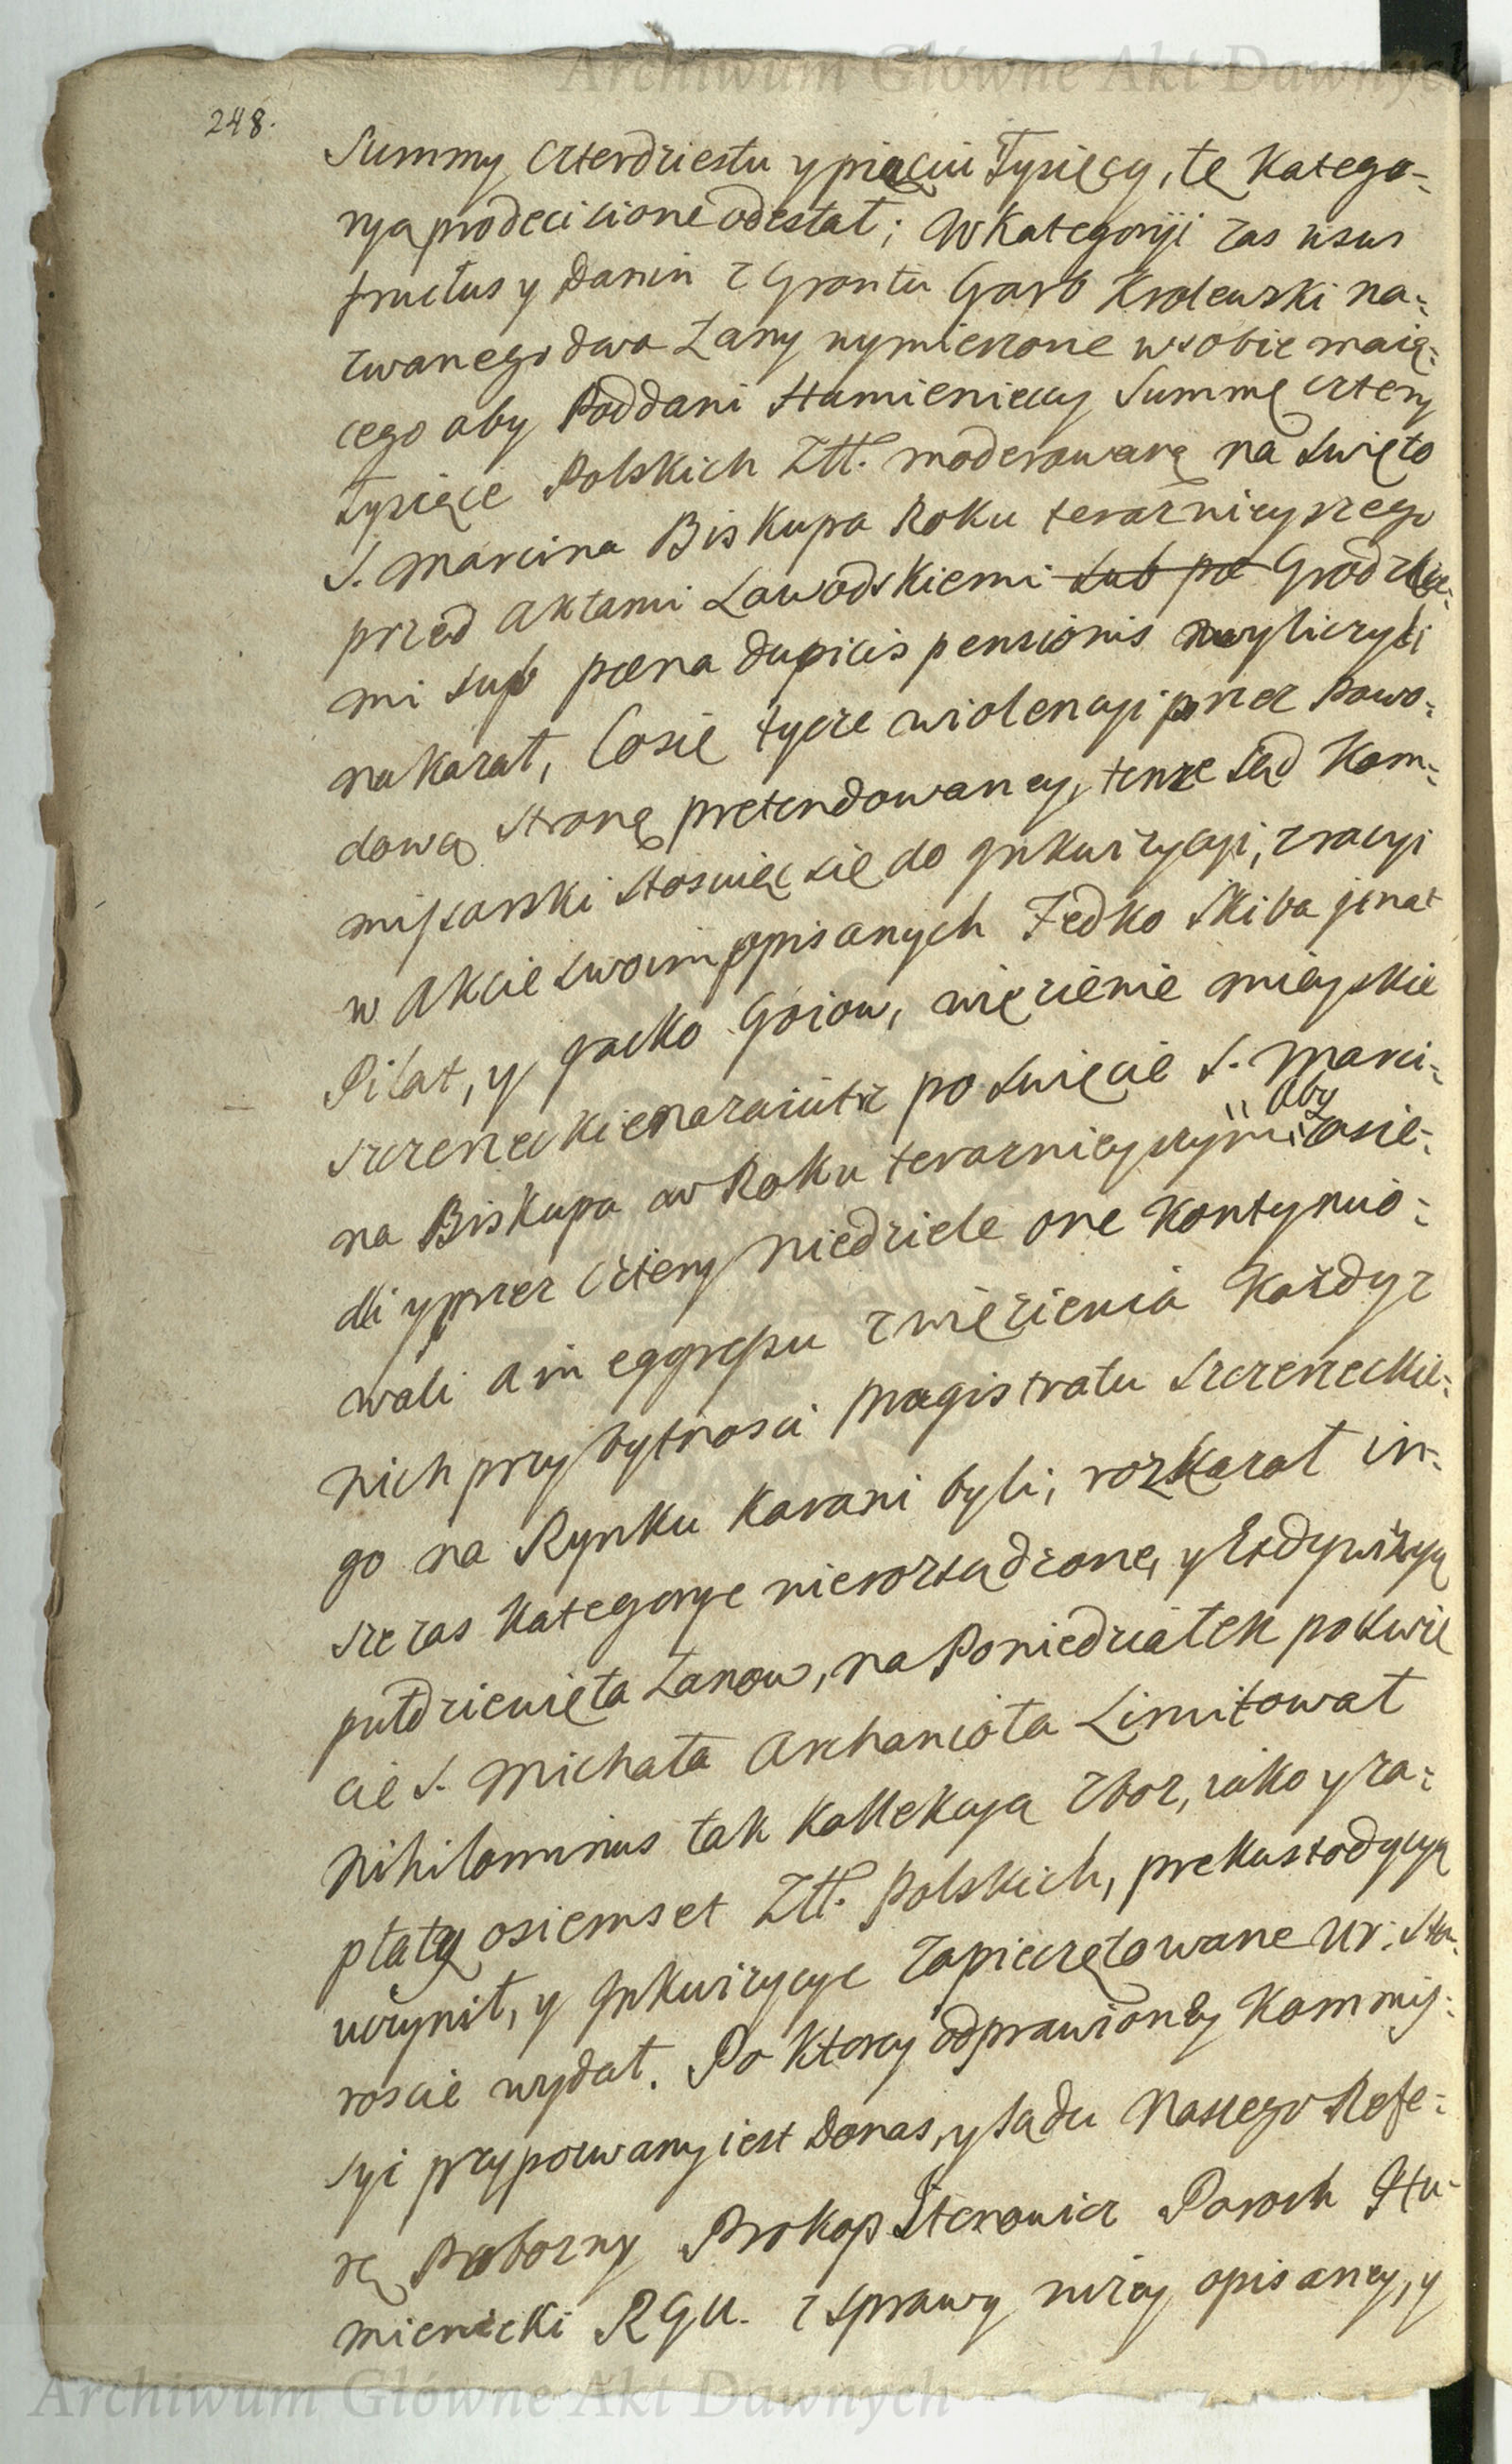 Archiwum Główne Akt Dawnych
248.
Summy czterdziestu y pięciu Tysięcy, tę Katego-
ryą pro decisione odesłał; W Kategoryi zas usus
fructus y Danin z Gruntu Garb Krolewski na-
zwanego dwa Łany wymierzone w sobie maią-
cego aby Poddani Stumienieccy Summę cztery
tysiące Polskich Złł. moderowaną na Swięto
S. Marcina Biskupa Roku teraznieyszego
przed aktami Zawodskiemi Grodzkie-
mi sub pœna dupicis pensionis wyliczyli
nakazał, Cosie tycze wiolencyi przez Powo-
dową stronę pretendowaney, tenze Sąd Kom-
missarski stosuiąc się do Jnkwizycyi, z racyi
w Akcie swoim opisanych Fedko Skiba jnat
Piłat, y Jacko Goiow, więzienie mieyskie
Szczerzeckie zaraiutrz po Swięcie S. Marci-
na Biskupa w Roku teraznieyszym aby zasie-
dli y przez Cztery niedziele one kontynuo-
wali a in eggressu z więzienia każdy z
nich przy bytnosci Magistratu Szczerzeckie-
go na Rynku karani byli, rozkazał in-
sze zas Kategorye nierozsądzone, y Exdywizyą
pułdziewięta Łanow, na Poniedziałek po Swię
cie S. Michała Archanioła Limitował
Nihilominus tak Kollekcyą Zboż, iako y za-
płatę osiemset Złł. Polskich, prekustodycyą
uczynił, y Jnkwizycye Zapieczętowane Ur: Sta-
roscie wydał. Po ktorey odprawioney Kommis-
syi przypozwany iest Donas, y Sądu Naszego Refe-
rę Poborny Prokop Sterowicz Paroch Stu-
mieniecki RGU. z sprawy niżey opisaney, y
Archiwum Główne Akt Dawnych